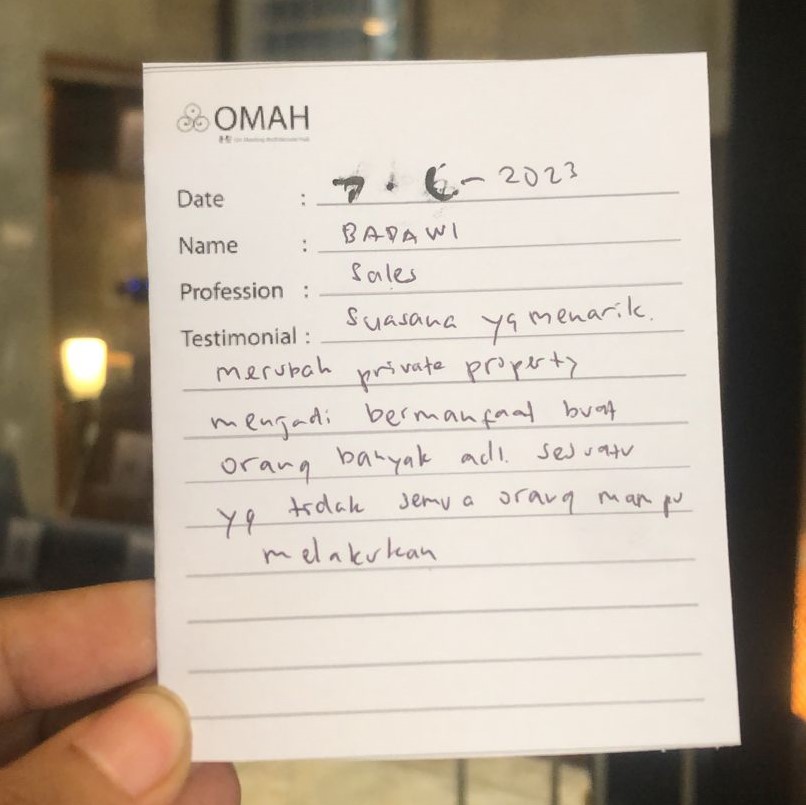 OMAH
Date : 7. 6 - 2023
Name : BADAWI
Profession : Sales
Testimonial : Suasana yg menarik.
merubah private property
menjadi bermanfaat buat
orang banyak adl. sesuatu
yg tidak semua orang mampu
melakukan